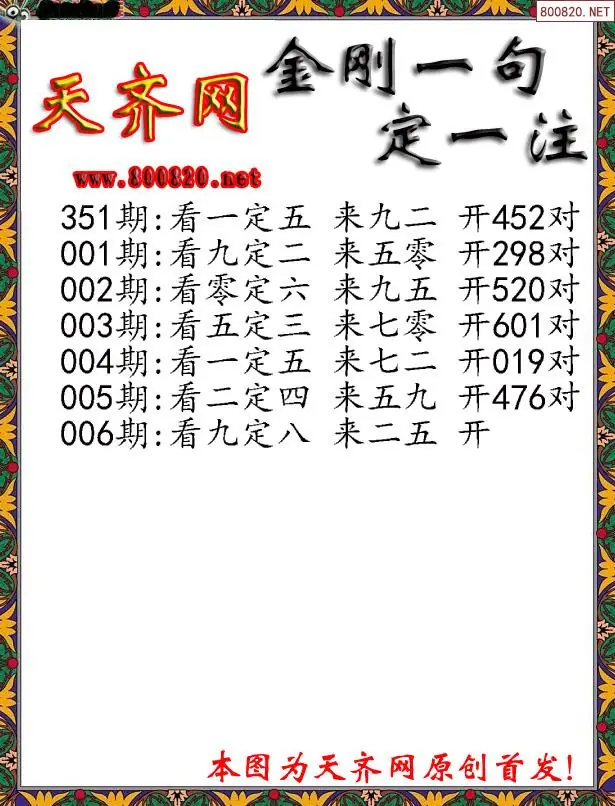 800820.NET
金刚一句
定一注
天齐网
www.800820.net
351期:看一定五 来九二 开452对
001期:看九定二 来五零 开298对
002期:看零定六 来九五 开520对
003期:看五定三 来七零 开601对
004期:看一定五 来七二 开019对
005期:看二定四 来五九 开476对
006期:看九定八 来二五 开
本图为天齐网原创首发!